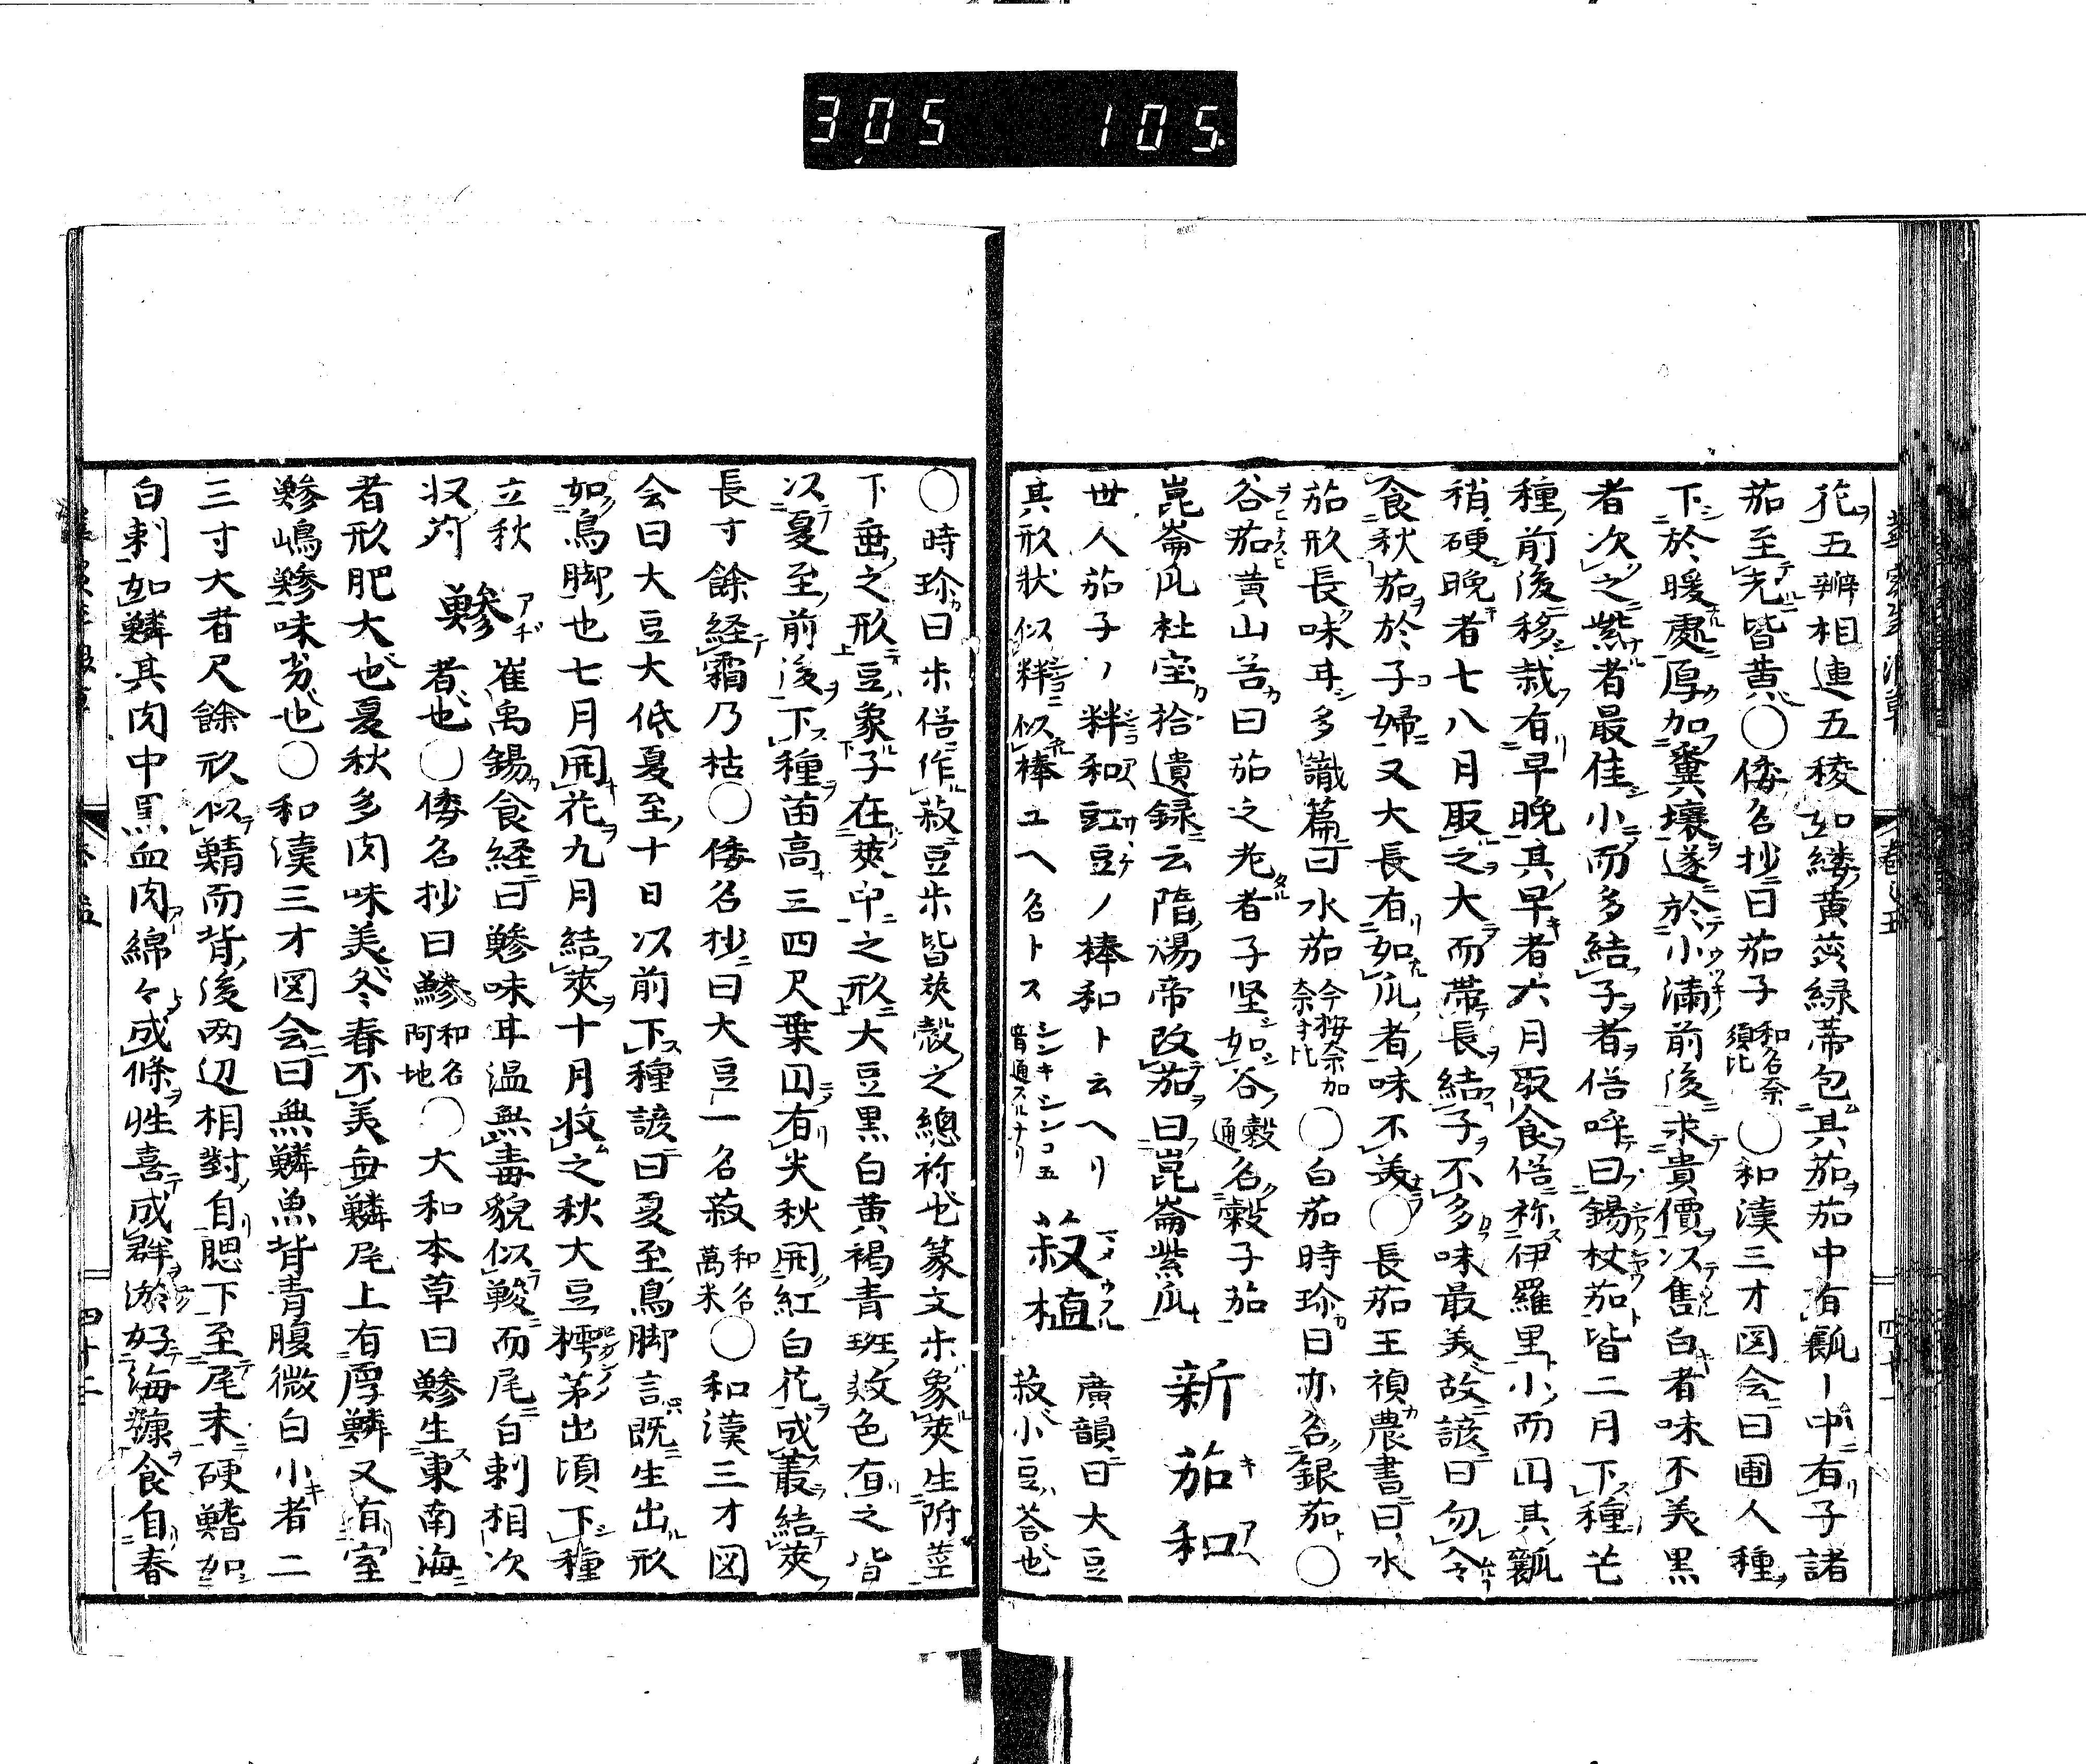 305 105
花五瓣相連五稜如縷黄蕊緑蒂包其茄茄中有瓤〻中有子諸
茄至老皆黄〇倭名抄曰茄子和名奈須比〇和漢三才図会曰圃人種
下於暖處厚加糞壤遂於小滿前後求貴價以售白者味不美黒
者次之紫者最佳小而多結子者俗呼曰錫杖茄皆二月下種芒
種前後移栽有早晩其早者六月取食俗称伊羅里小而円其瓤
稍硬晩者七八月取之大而蔕長結子不多味最美故諺曰勿令
食秋茄於子婦又大長有如瓜者味不美〇長茄王禎農書曰水
茄形長味甘多識篇曰水茄今按奈加奈須比〇白茄時珍曰亦名銀茄〇
谷茄黄山谷曰茄之老者子堅如谷穀通名穀子茄
崑崙瓜杜宝拾遺録云隋煬帝改茄曰崑崙紫瓜 新茄和
世人茄子ノ粰和豇豆ノ棒和ト云ヘリ
其形状似粰似棒ユヘ名トス
菽植 廣韻曰大豆
菽小豆荅也
〇時珍曰尗俗作菽豆尗皆莢殻之總称也篆文尗象莢生附莖
下垂之形豆象子在莢中之形大豆黒白黄褐青斑數色有之皆
以夏至前後下種苗高三四尺葉円有尖秋開紅白花成叢結莢
長寸餘経霜乃枯〇倭名抄曰大豆一名菽和名萬米〇和漢三才図
会曰大豆大低夏至十日以前下種諺曰夏至鳥脚言既生出形
如鳥脚也七月開花九月結莢十月收之秋大豆樗茅出頃下種
立秋收苅 鰺 アヂ 崔禹錫食経曰鰺味甘温無毒貌似鯼而尾白刺相次
者也〇倭名抄曰鰺和名阿地〇大和本草曰鰺生東南海
者形肥大也夏秋多肉味美冬春不美毎鱗尾上有厚鱗又有室
鰺嶋鰺味劣也〇和漢三才図会曰無鱗魚背青腹微白小者二
三寸大者尺餘形似鯖而背後両辺相對自腮下至尾末硬鰭如
白刺如鱗其肉中黒血肉綿々成條性喜成群游好海糠食自春